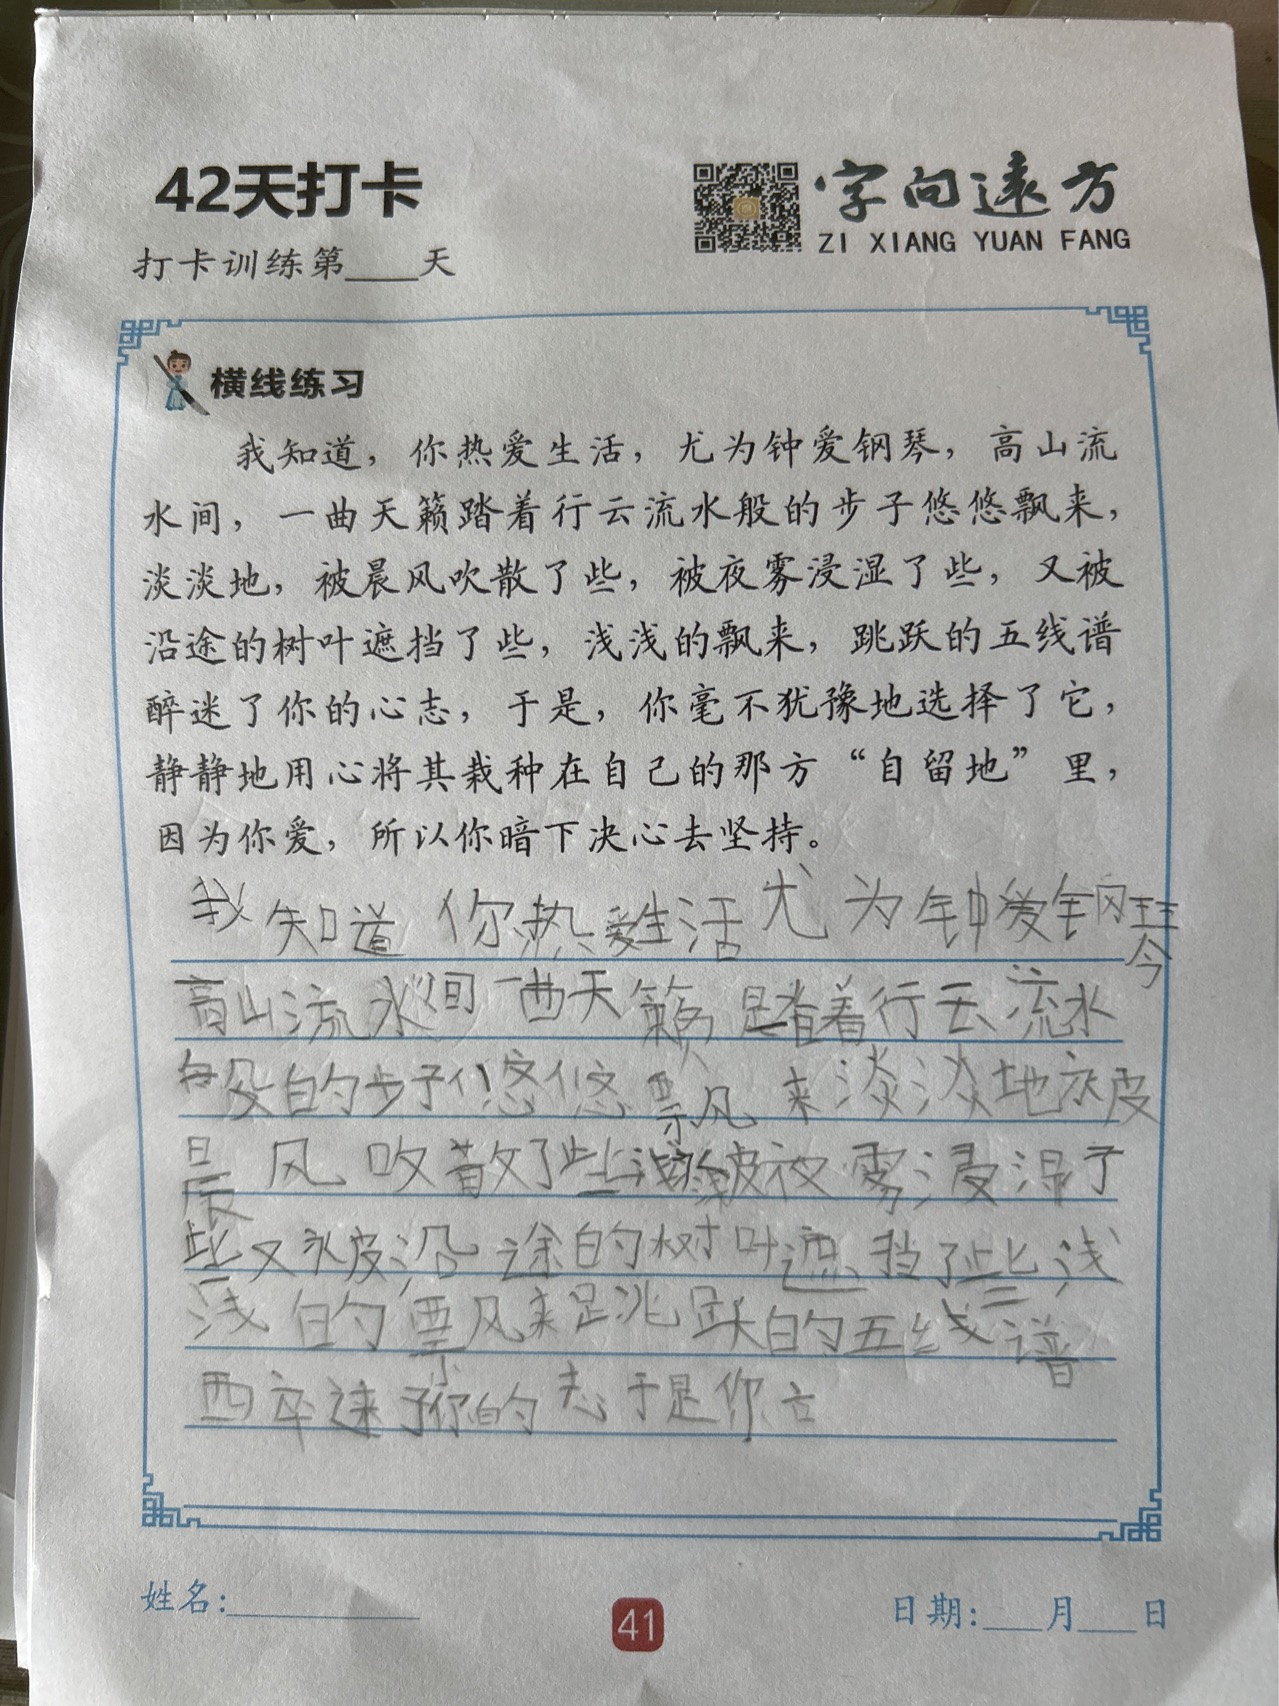 42天打卡
字向远方
ZI XIANG YUAN FANG
打卡训练第____天
横线练习
我知道，你热爱生活，尤为钟爱钢琴，高山流
水间，一曲天籁踏着行云流水般的步子悠悠飘来，
淡淡地，被晨风吹散了些，被夜雾浸湿了些，又被
沿途的树叶遮挡了些，浅浅的飘来，跳跃的五线谱
醉迷了你的心志，于是，你毫不犹豫地选择了它，
静静地用心将其栽种在自己的那方“自留地”里，
因为你爱，所以你暗下决心去坚持。
我知道 你热爱生活尤为钟爱钢琴
高山流水间一曲天籁踏着行云流水
般的步子悠悠飘来淡淡地被
晨风吹散了些被夜雾浸湿了
些又被沿途的树叶遮挡了些浅
浅的飘来跳跃的五线谱
醉迷了你的志于是你
姓名:
41
日期:___月___日